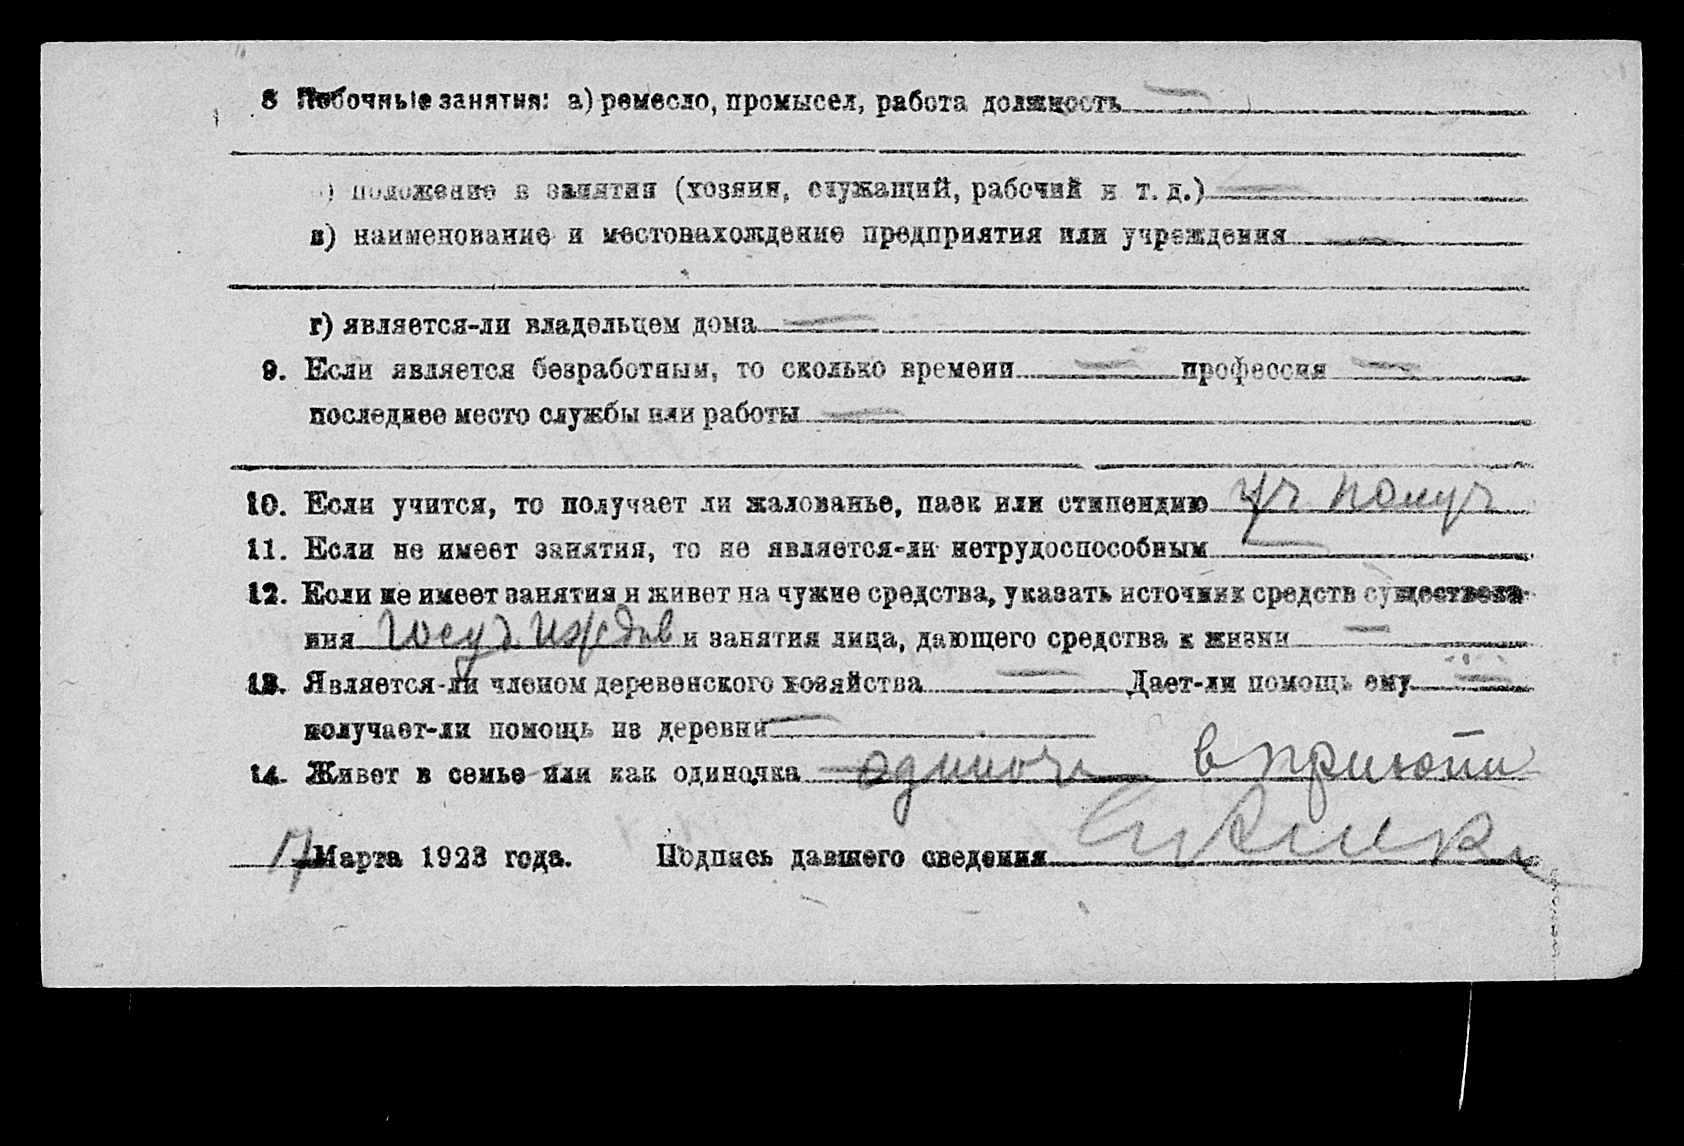 8 Побочные занятия: а) ремесло, промысел, работа должность —
) положение в занятии (хозяин, служащий, рабочий и т. д.) —
в) наименование и местонахождение предприятия или учреждения —
г) является-ли владельцем дома —
9. Если является безработным, то сколько времени — профессия —
последнее место службы или работы —
10. Если учится, то получает ли жалованье, паек или стипендию уч получ
11. Если не имеет занятия, то не является-ли нетрудоспособным —
12. Если не имеет занятия и живет на чужие средства, указать источник средств существова-
ния Госуд. иждив и занятия лица, дающего средства к жизни —
13. Является-ли членом деревенского хозяйства — Дает-ли помощь ему —
получает-ли помощь из деревни —
14. Живет в семье или как одиночка одиноч в приюти
17 Марта 1923 года. Подпись давшего сведения